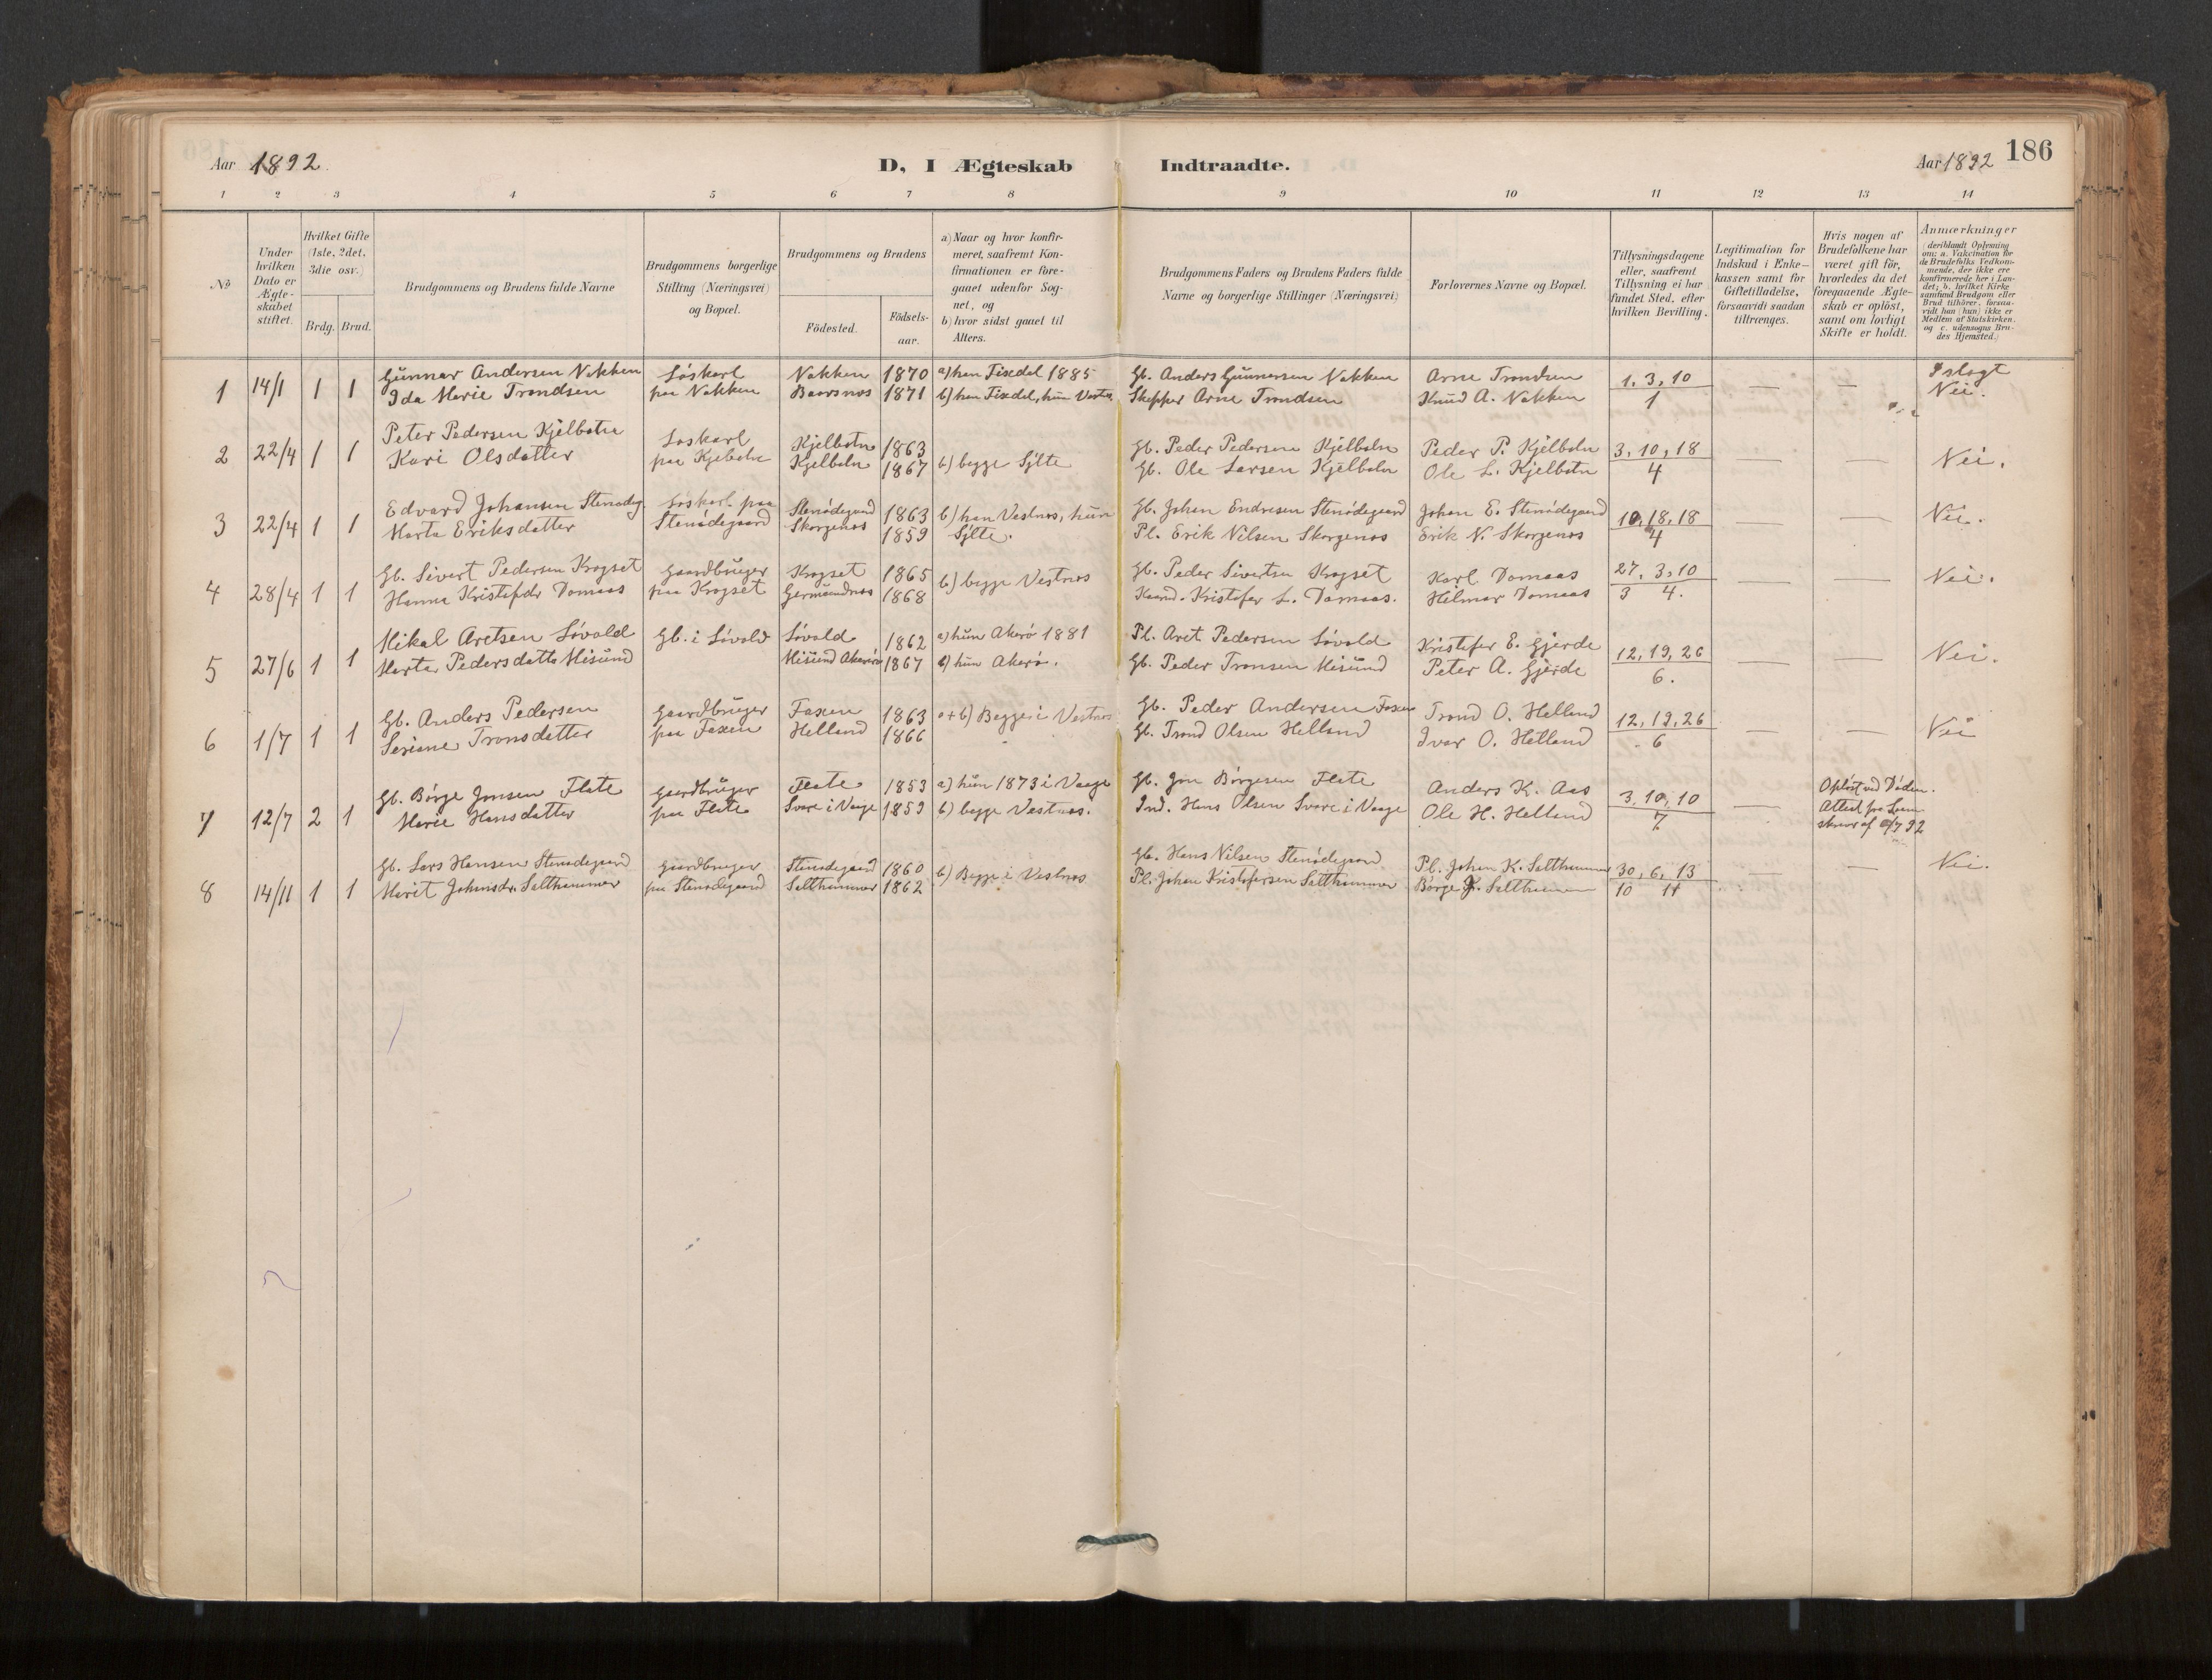 Aar 1892.
D, I Ægteskab Indtraadte.
Aar 1892 186
1 2 3 4 5 6 7 8 9 10 11 12 13 14
No
Under hvilken Dato er Ægteskabet stiftet.
Hvilket Gifte (1ste, 2det, 3die osv.)
Brdg. Brud.
Brudgommens og Brudens fulde Navne
Brudgommens borgerlige Stilling (Næringsvei) og Bopæl.
Brudgommens og Brudens
Födested.
Födsels-aar.
a) Naar og hvor konfirmeret, saafremt Konfirmationen er foregaaet udenfor Sognet, og
b) hvor sidst gaaet til Alters.
Brudgommens Faders og Brudens Faders fulde Navne og borgerlige Stillinger (Næringsvei)
Forlovernes Navne og Bopæl.
Tillysningsdagene eller, saafremt Tillysning ei har fundet Sted, efter hvilken Bevilling.
Legitimation for Indskud i Enkekassen samt for Giftetilladelse, forsaavidt saadan tiltrænges.
Hvis nogen af Brudefolkene har været gift för, hvorledes da det foregaaende Ægteskab er oplöst, samt om lovligt Skifte er holdt.
Anmærkninger
(deriblandt Oplysning om: a. Vakcination for de Brudefolks Vedkommende, der ikke ere konfirmerede her i Landet; b. hvilket Kirkesamfund Brudgom eller Brud tilhörer, forsaavidt han (hun) ikke er Medlem af Statskirken. og c. udensogns Brudes Hjemsted.)
1 14/1 1 1 Gunnar Andersen Nakken Löskarl Nakken 1870 a) han Fixdal 1885 Gb. Anders Gunnarsen Nakken Arne Trondsen 1, 3, 10 — — I slegt
Ida Marie Trondsen paa Nakken Baarsnes 1871 b) han Fixdal, hun Vestnes Skipper Arne Trondsen Knud A. Nakken 1 Nei.
2 22/4 1 1 Peter Pedersen Kjelbotn Löskarl Kjelbotn 1863 Gb. Peder Pedersen Kjelbotn Peder P. Kjelbotn 3, 10, 18 — — Nei.
Kari Olsdatter paa Kjelbotn Kjelbotn 1867 b) begge Sylte Gb. Ole Larsen Kjelbotn Ole L. Kjelbotn 4
3 22/4 1 1 Edvard Johansen Stenødeg. Löskarl paa Stenødegaard 1863 b) han Vestnes, hun Gb. Johan Endresen Stenødegaard Johan E. Stenødegaard 10, 18, 18 — — Nei.
Marta Eriksdatter Stenødegaard Skorgenes 1859 Sylte. Pl. Erik Nilsen Skorgenes Erik N. Skorgenes 4
4 28/4 1 1 Gb. Sivert Pedersen Krogset Gaardbruger Krogset 1865 b) begge Vestnes Gb. Peder Sivertsen Krogset Karl Domaas 27, 3, 10 — — Nei.
Hanna Kristofdr Domaas paa Krogset Germundnes 1868 Kristofer L. Domaas. Hilmar Domaas 3 4.
5 27/6 1 1 Mikal Aretsen Lövold Gb. i Lövold Lövold 1862 a) hun Akerö 1881 Pl. Aret Pedersen Lövold Kristofer E. Gjerde 12, 19, 26 — — Nei.
Marta Pedersdatter Misund Misund Akerö 1867 b) hun Akerö. Gb. Peder Tronsen Misund Peter A. Gjerde 6.
6 1/7 1 1 Gb. Anders Pedersen Gaardbruger Faxen 1863 a + b) Begge i Vestnes Gb. Peder Andersen Faxen Trond O. Helland 12, 19, 26 — — Nei
Seriane Tronsdatter paa Faxen Helland 1866 Gb. Trond Olsen Helland Ivar O. Helland 6
7 12/7 2 1 Gb. Börge Jonsen Flate Gaardbruger Flate 1853 a) hun 1873 i Vaage Gb. Jon Börgesen Flate Anders K. Aas 3, 10, 10 — Oplöst ved Döden.
Marie Hansdatter paa Flate Svare i Vaage 1859 b) begge Vestnes. Ind. Hans Olsen Svare i Vaage Ole H. Helland 7 Attest fra Soren-
skriver af /7 92
8 14/11 1 1 Gb. Lars Hansen Stenødegaard Gaardbruger Stenødegaard 1860 b) Begge i Vestnes Gb. Hans Nilsen Stenødegaard Pl. Johan K. Salthammer 30, 6, 13 — — Nei.
Marit Johansdr. Salthammer paa Stenødegaard Salthammer 1862 Pl. Johan Kristofersen Salthammer Börge J. Salthammer 10 11